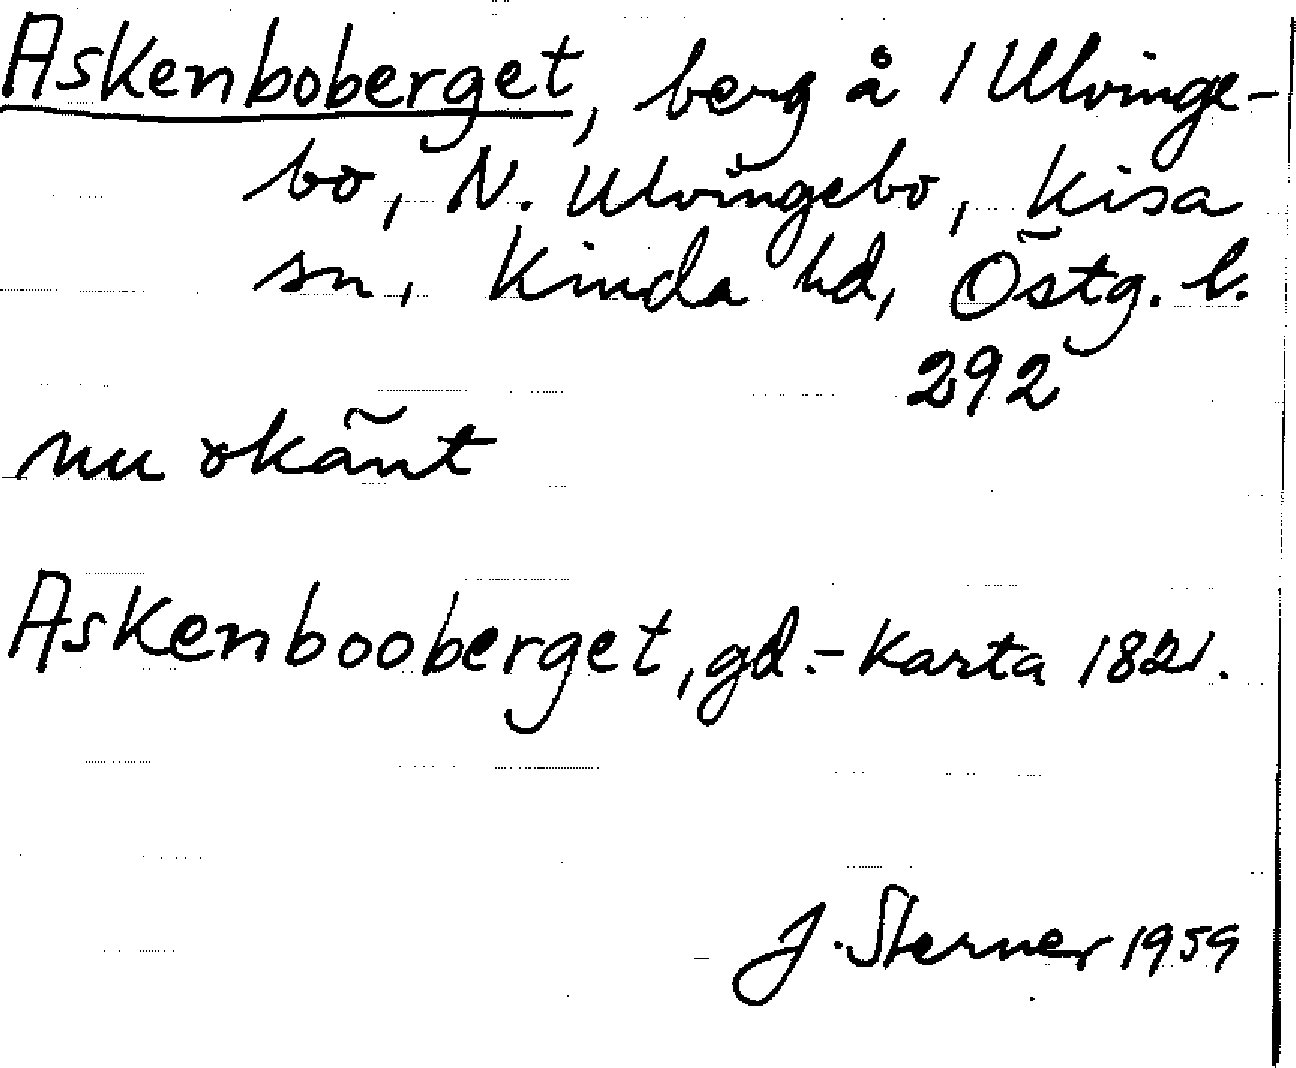 Askenboberget, berg å 1 Ulvinge-
bo, N. Ulvingebo, Kisa
sn, Kinda hd, Östg. l.
292
nu okänt
Askenbooberget, gd.- Karta 1821.
J. Sterner 1959